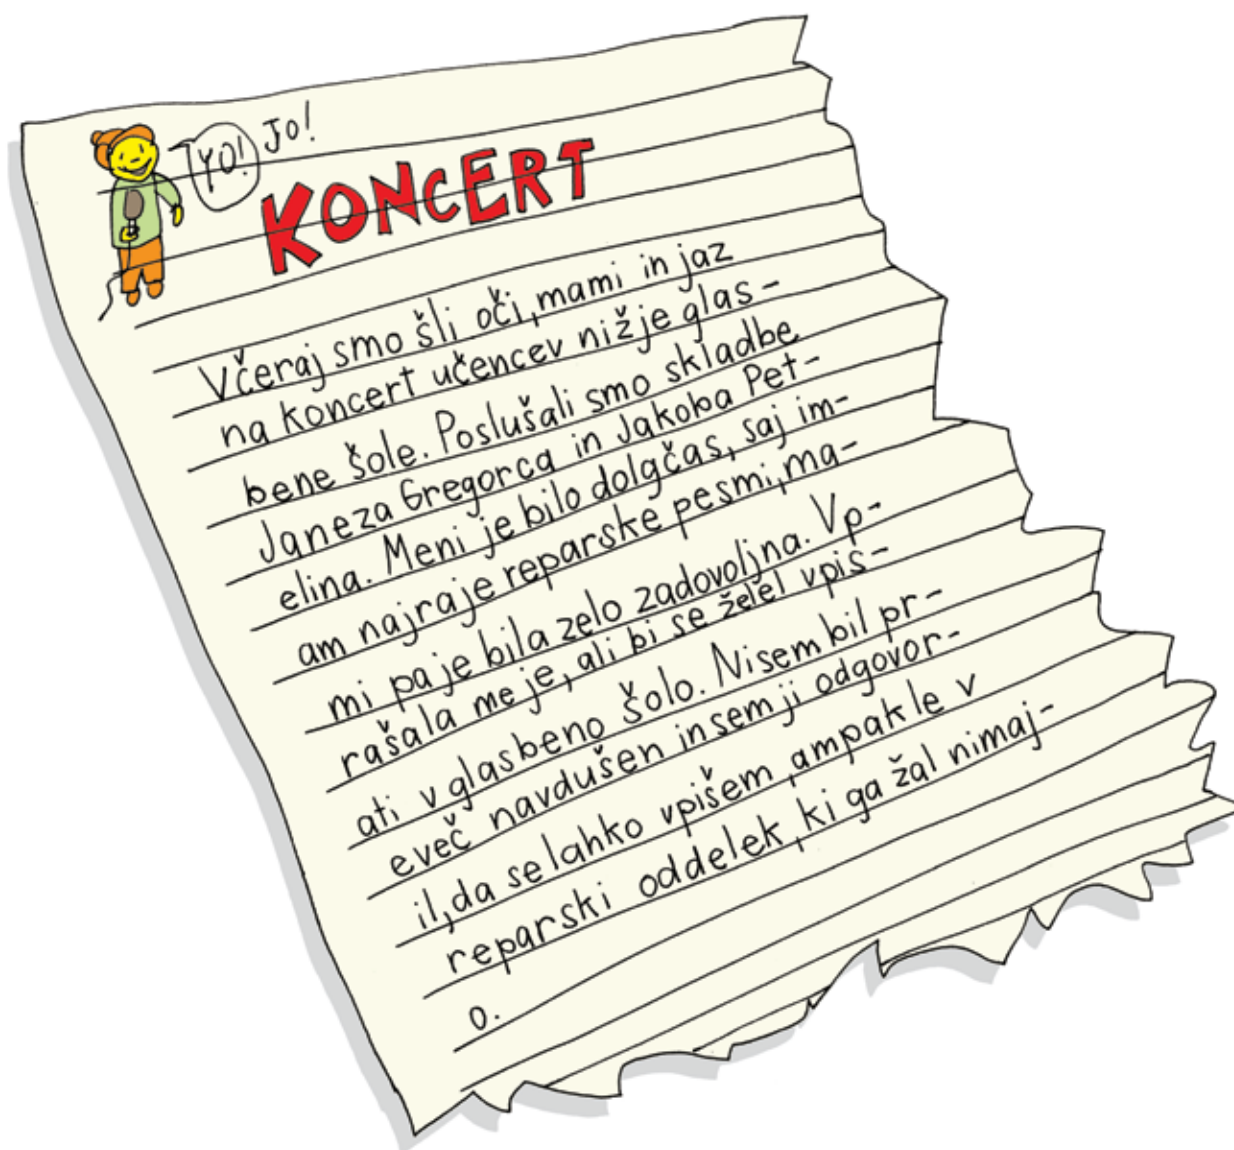 YO! Jo!
KONCERT
Včeraj smo šli oči, mami in jaz
na koncert učencev nižje glas-
bene šole. Poslušali smo skladbe
Janeza Gregorca in Jakoba Pet-
elina. Meni je bilo dolgčas, saj im-
am najraje reparske pesmi, ma-
mi pa je bila zelo zadovoljna. Vp-
rašala me je, ali bi se želel vpis-
ati v glasbeno šolo. Nisem bil pr-
eveč navdušen in sem ji odgovor-
il, da se lahko vpišem, ampak le v
reparski oddelek, ki ga žal nimaj-
o.